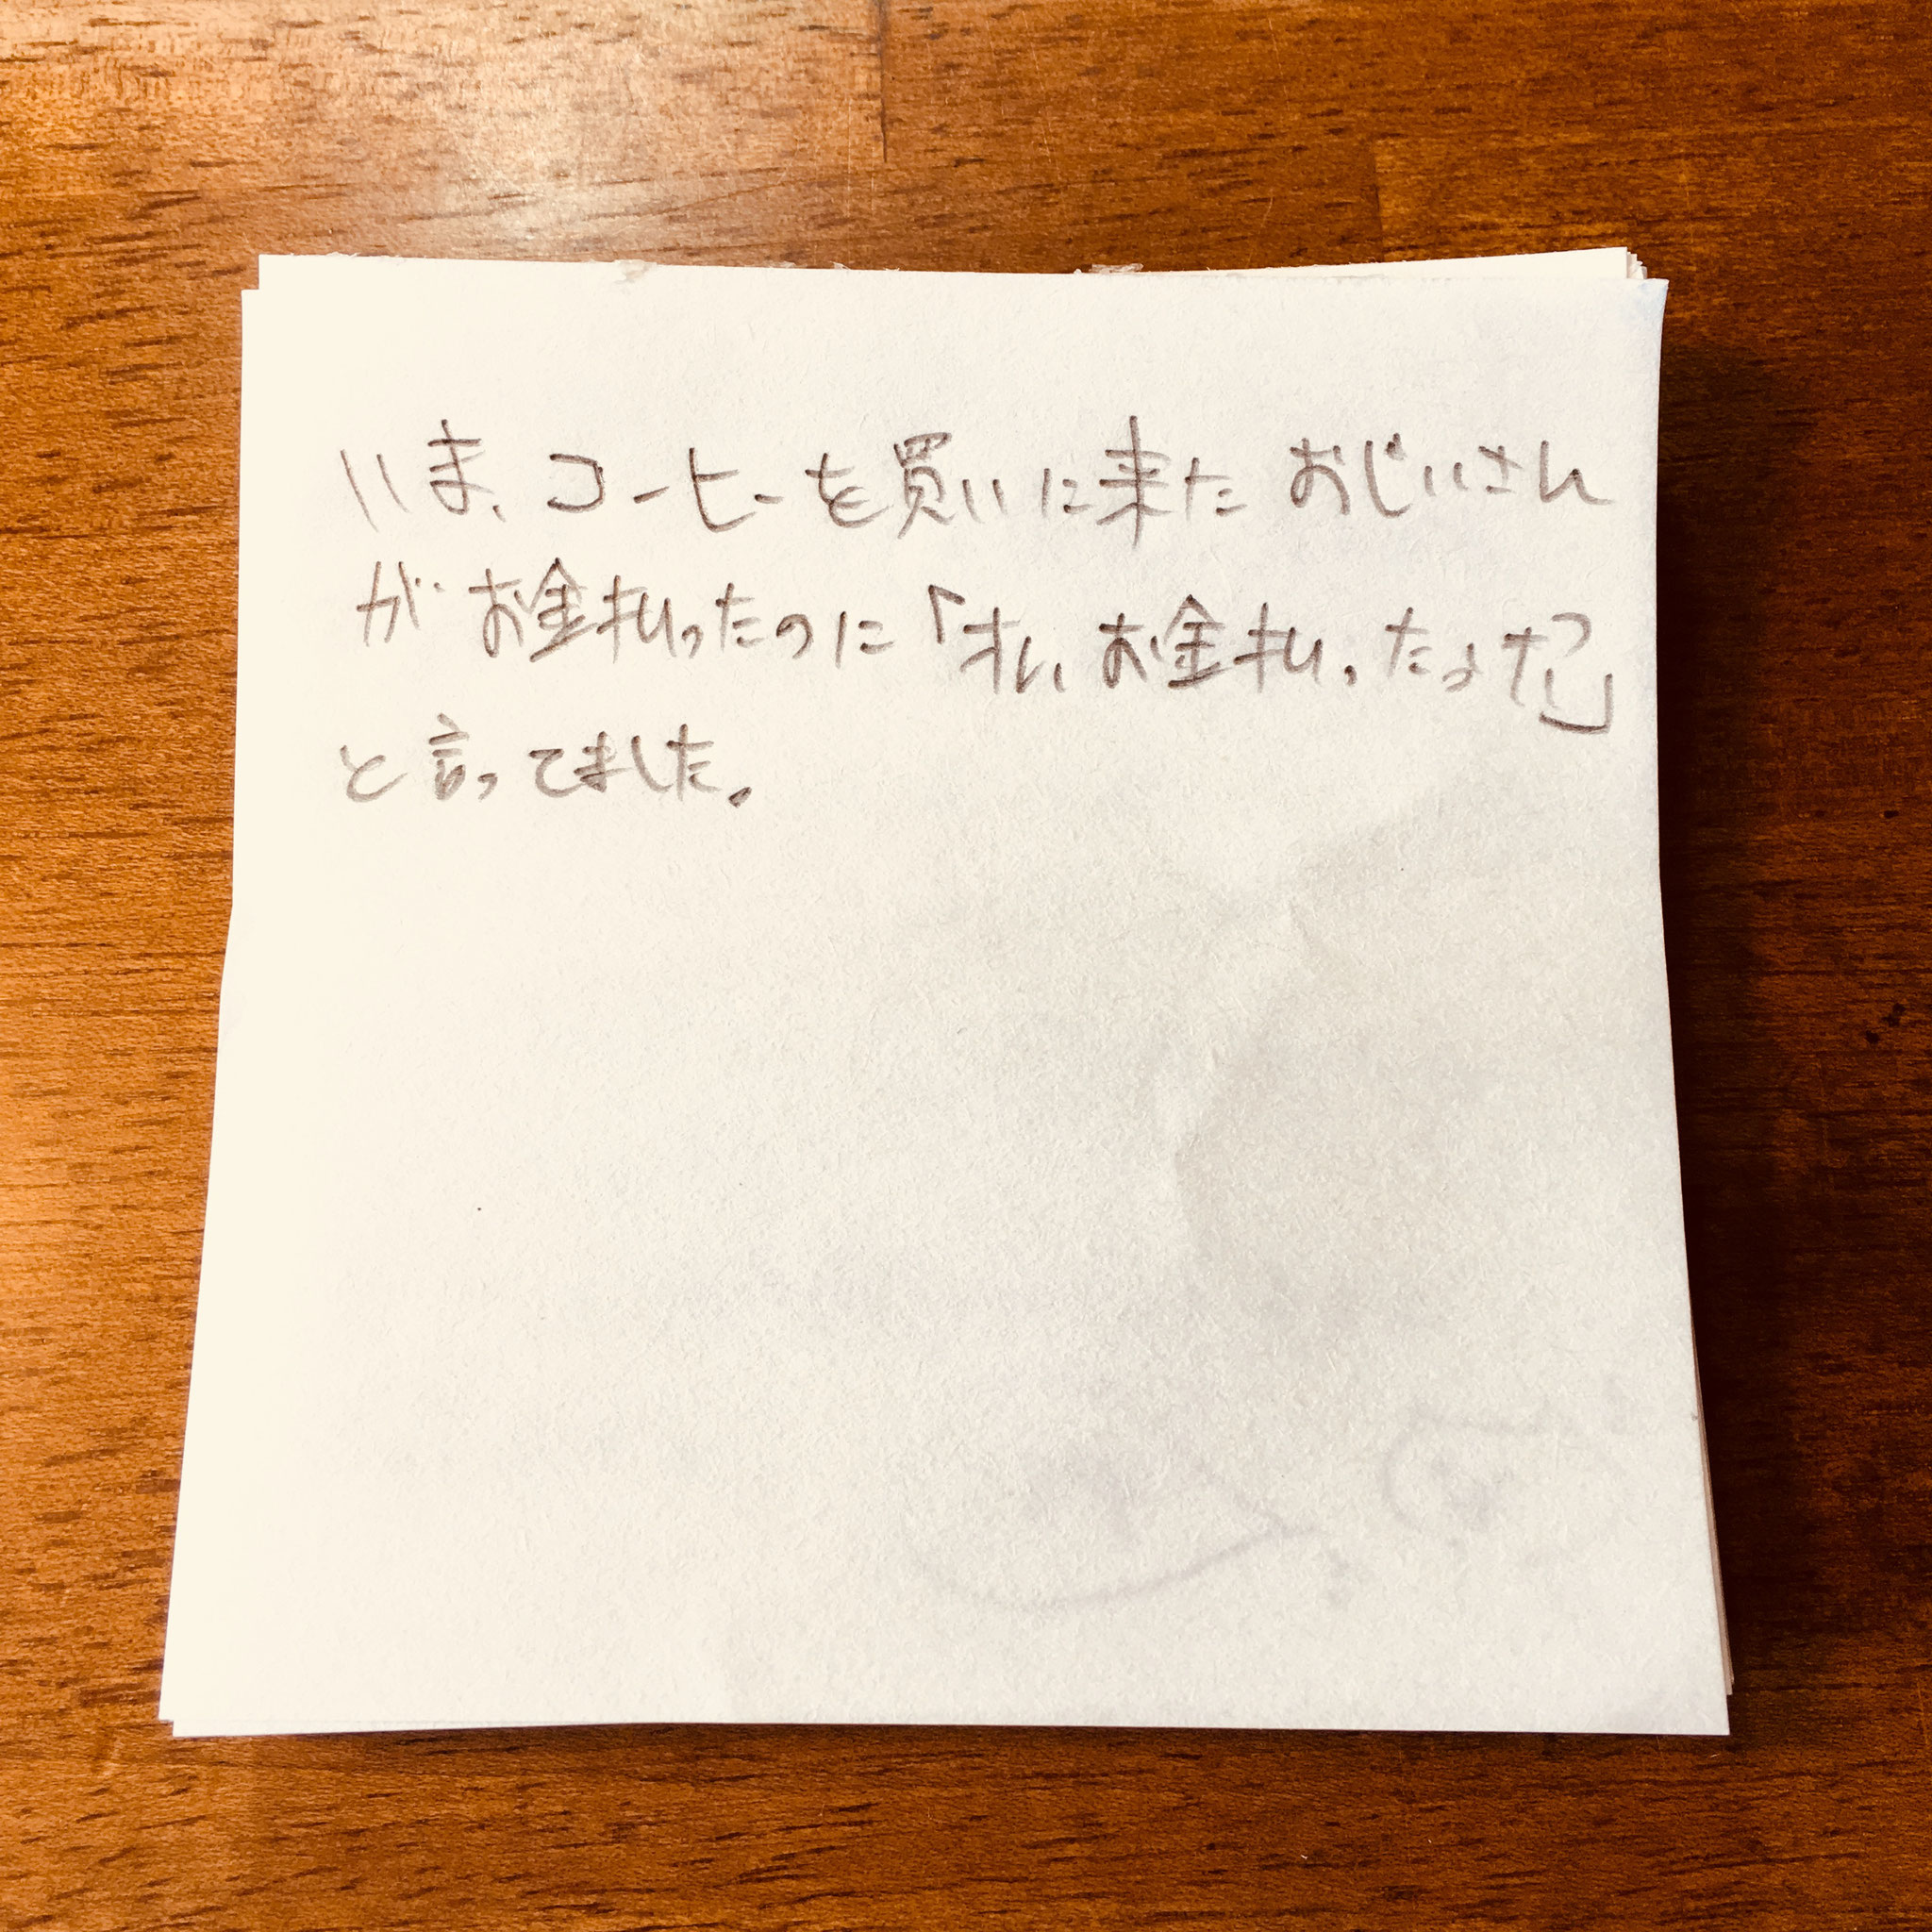 いま、コーヒーを買いに来たおじいさん
がお金払ったのに「オレ、お金払ったっけ?」
と言ってました。